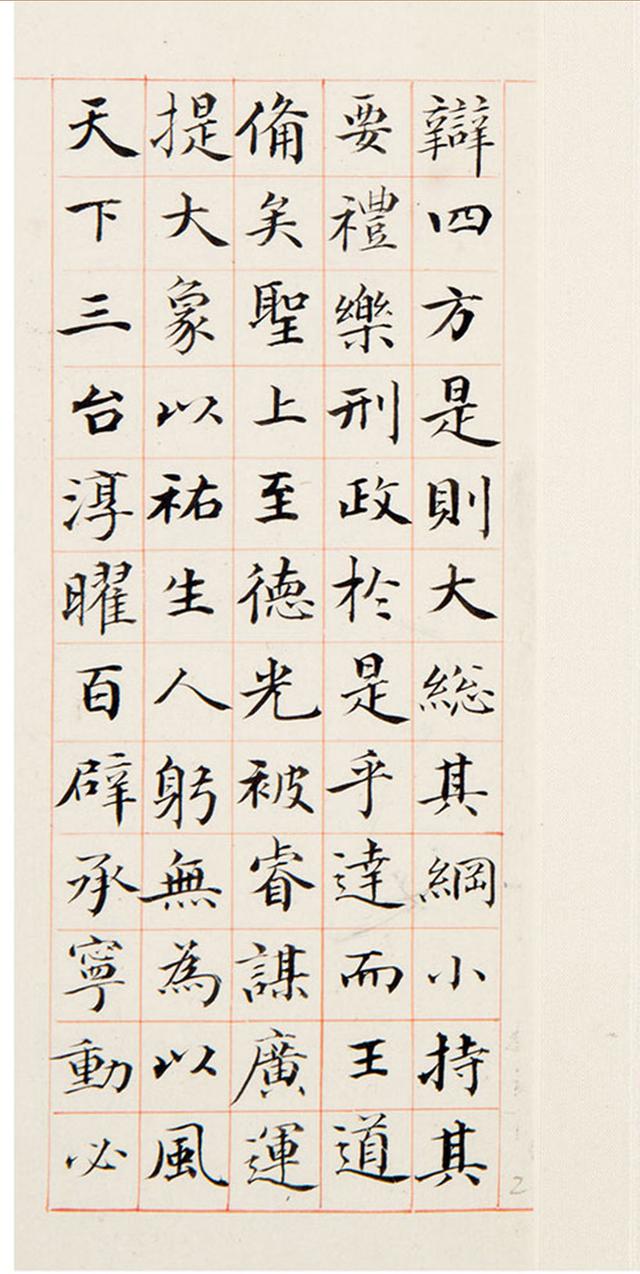 辯四方是則大緫其綱小持其
要禮樂刑政於是乎達而王道
俻矣聖上至德光被睿謀廣運
提大象以祐生人躬無為以風
天下三台淳曜百辟承寧動必
2